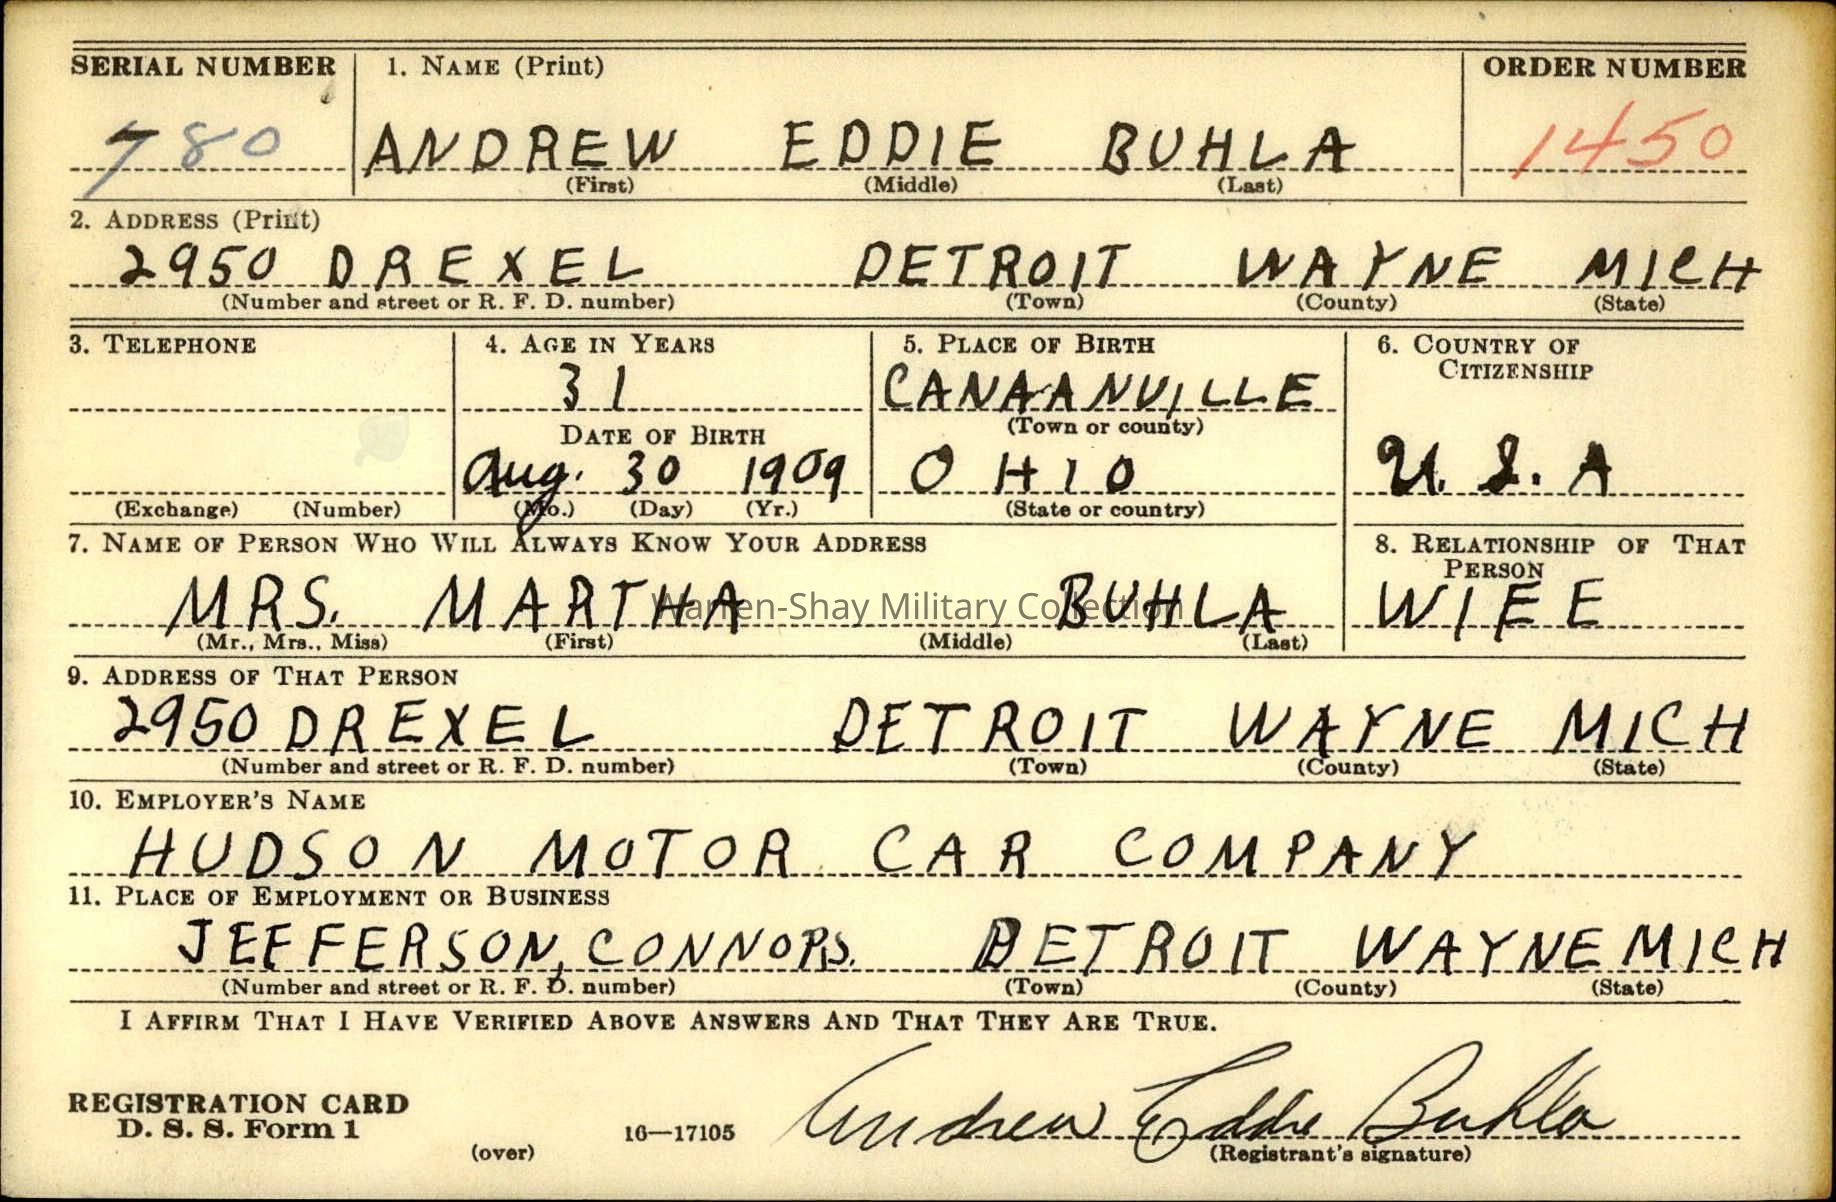 SERIAL NUMBER 1. NAME (Print) ORDER NUMBER
780 ANDREW EDDIE BUHLA 1450
(First) (Middle) (Last)
2. ADDRESS (Print)
2950 DREXEL DETROIT WAYNE MICH
(Number and street or R. F. D. number) (Town) (County) (State)
3. TELEPHONE 4. AGE IN YEARS 5. PLACE OF BIRTH 6. COUNTRY OF
CITIZENSHIP
31 CANAANVILLE
(Town or county)
DATE OF BIRTH
Aug. 30 1909 OHIO U. S. A
(Exchange) (Number) (Mo.) (Day) (Yr.) (State or country)
7. NAME OF PERSON WHO WILL ALWAYS KNOW YOUR ADDRESS 8. RELATIONSHIP OF THAT
PERSON
MRS. MARTHA BUHLA WIFE
Warren-Shay Military Collection
(Mr., Mrs., Miss) (First) (Middle) (Last)
9. ADDRESS OF THAT PERSON
2950 DREXEL DETROIT WAYNE MICH
(Number and street or R. F. D. number) (Town) (County) (State)
10. EMPLOYER'S NAME
HUDSON MOTOR CAR COMPANY
11. PLACE OF EMPLOYMENT OR BUSINESS
JEFFERSON, CONNORS. DETROIT WAYNE MICH
(Number and street or R. F. D. number) (Town) (County) (State)
I AFFIRM THAT I HAVE VERIFIED ABOVE ANSWERS AND THAT THEY ARE TRUE.
REGISTRATION CARD
D. S. S. Form 1 16—17105 Andrew Eddie Buhla
(over) (Registrant's signature)